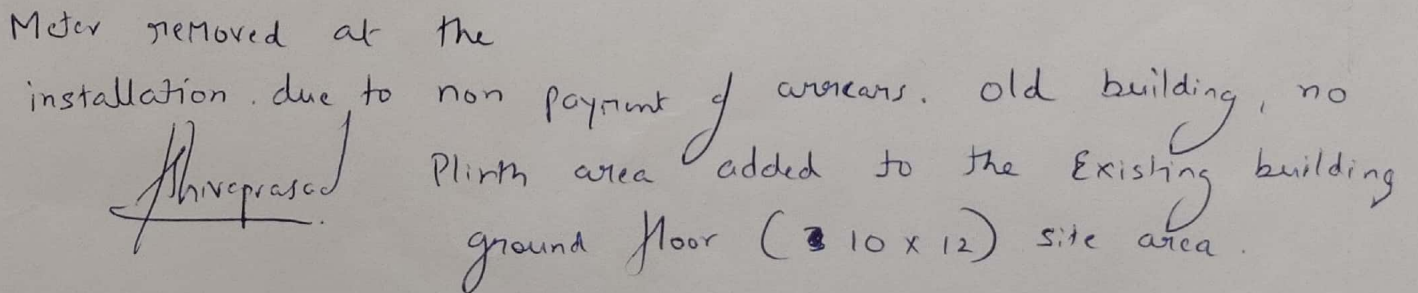 Meter removed at the
installation. due to non payment of arrears. old building, no
Shivaprasad Plinth area added to the Existing building
ground floor (10 x 12) site area.